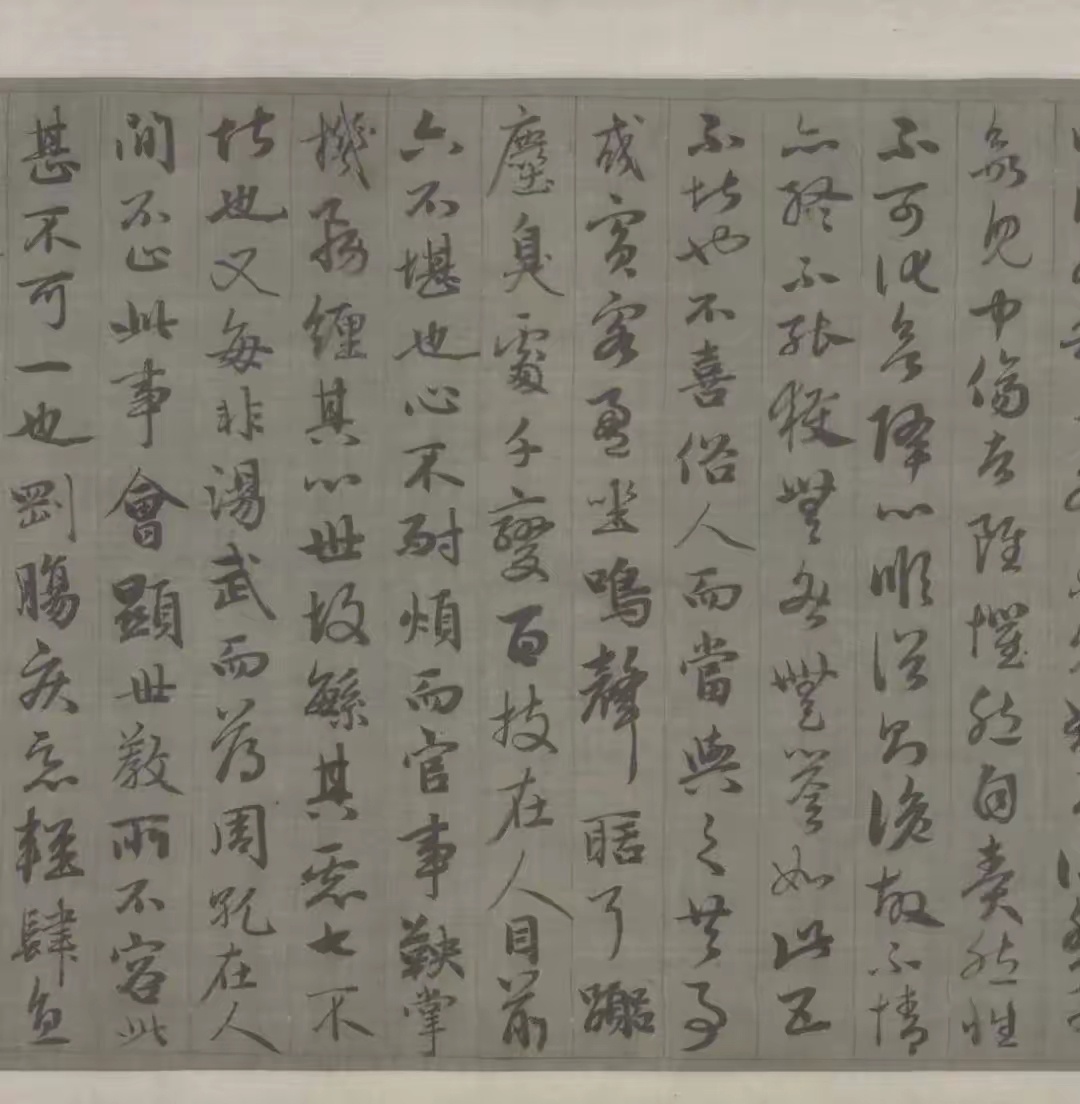 欲見中傷者雖懼然自責然性
不可化欲降心順俗則詭故不情
亦終不能獲無咎無譽如此五
不堪也不喜俗人而當與之共事
或賓客盈坐鳴聲聒耳
塵臭處千變百技在人目前
六不堪也心不耐煩而官事鞅掌
機務纏其心世故繁其慮七不
堪也又每非湯武而薄周孔在人
間不止此事會顯世教所不容此
甚不可一也剛腸疾惡輕肆直